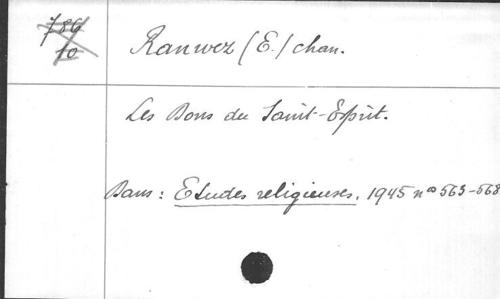 786
10
Ranwez (E.) chan.
Les Dons du Saint-Esprit.
Dans: Etudes religieuses, 1945 nos 563-568